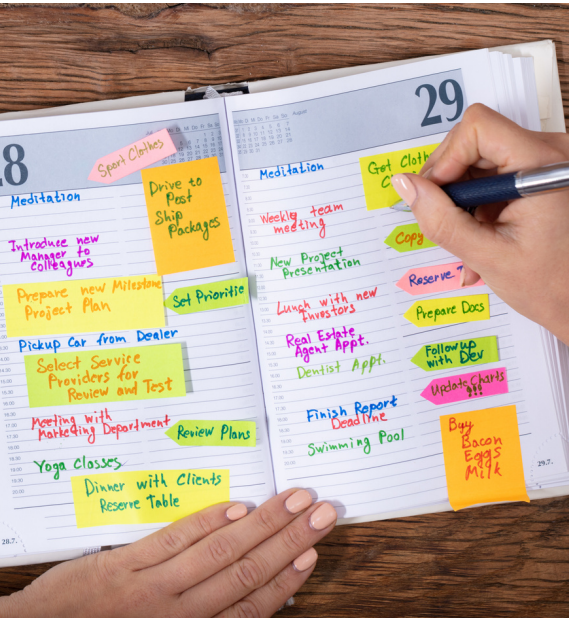 8
Sport Clothes
Meditation
Drive to
Post
Ship
Packages
Introduce new
Manager to
Colleagues
Prepare new Milestone
Project Plan
Set Prioritie
Pickup Car from Dealer
Select Service
Providers for
Review and Test
Meeting with
Marketing Department
Review Plans
Yoga Classes
Dinner with Clients
Reserve Table
28.7.
August
29
Meditation
Get Cloth
Weekly team
meeting
Copy
New Project
Presentation
Reserve
Lunch with new
Investors
Prepare Docs
Real Estate
Agent Appt.
Followup
with Dev
Dentist Appt.
Update Charts
!!!
Finish Report
Deadline
Swimming Pool
Buy
Bacon
Eggs
Milk
29.7.